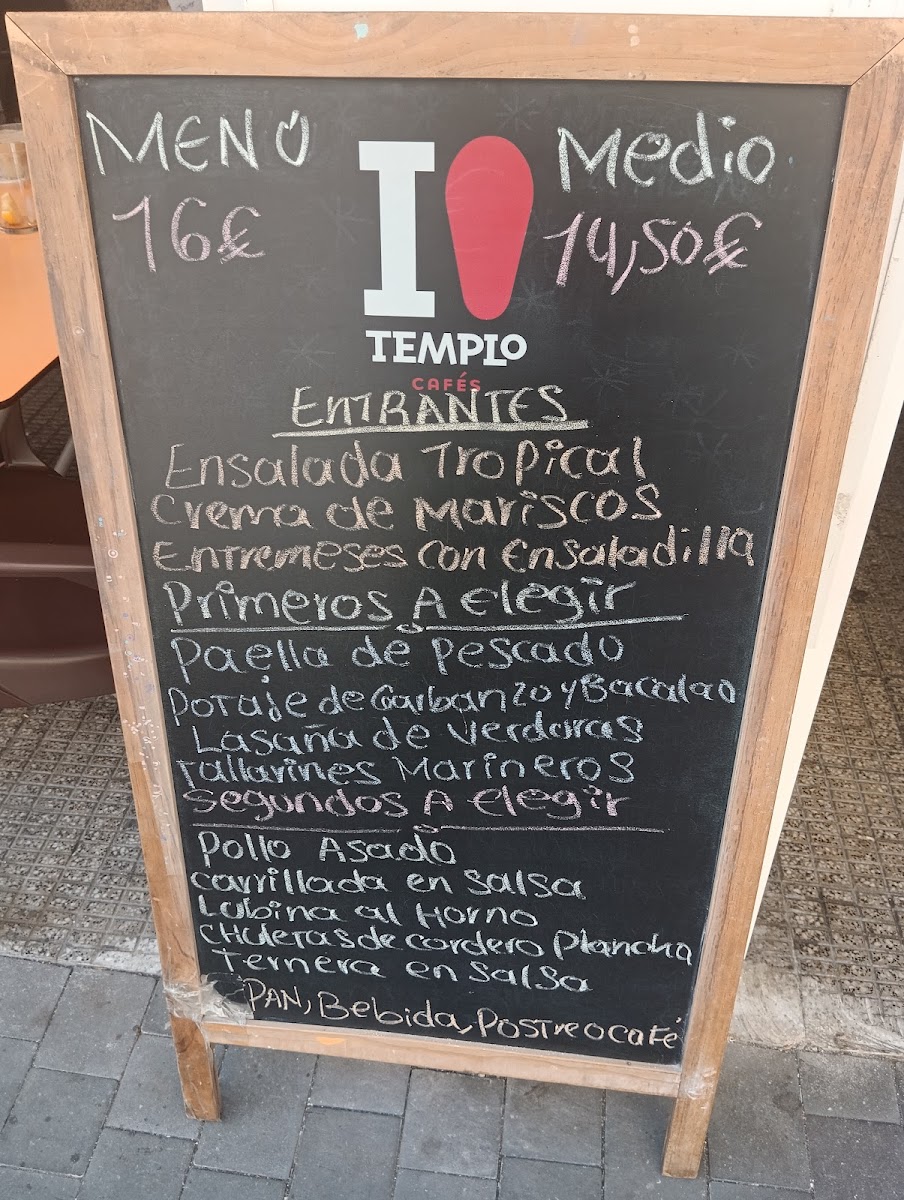 MENÚ
16€
Medio
14,50€
I
TEMPLO
CAFÉS
ENTRANTES
Ensalada Tropical
Crema de Mariscos
Entremeses con Ensaladilla
Primeros A Elegir
Paella de Pescado
Potaje de Garbanzo y Bacalao
Lasaña de Verduras
Tallarines Marineros
Segundos A Elegir
Pollo Asado
Carrillada en Salsa
Lubina al Horno
Chuletas de Cordero Plancha
Ternera en Salsa
PAN, Bebida, Postre o café